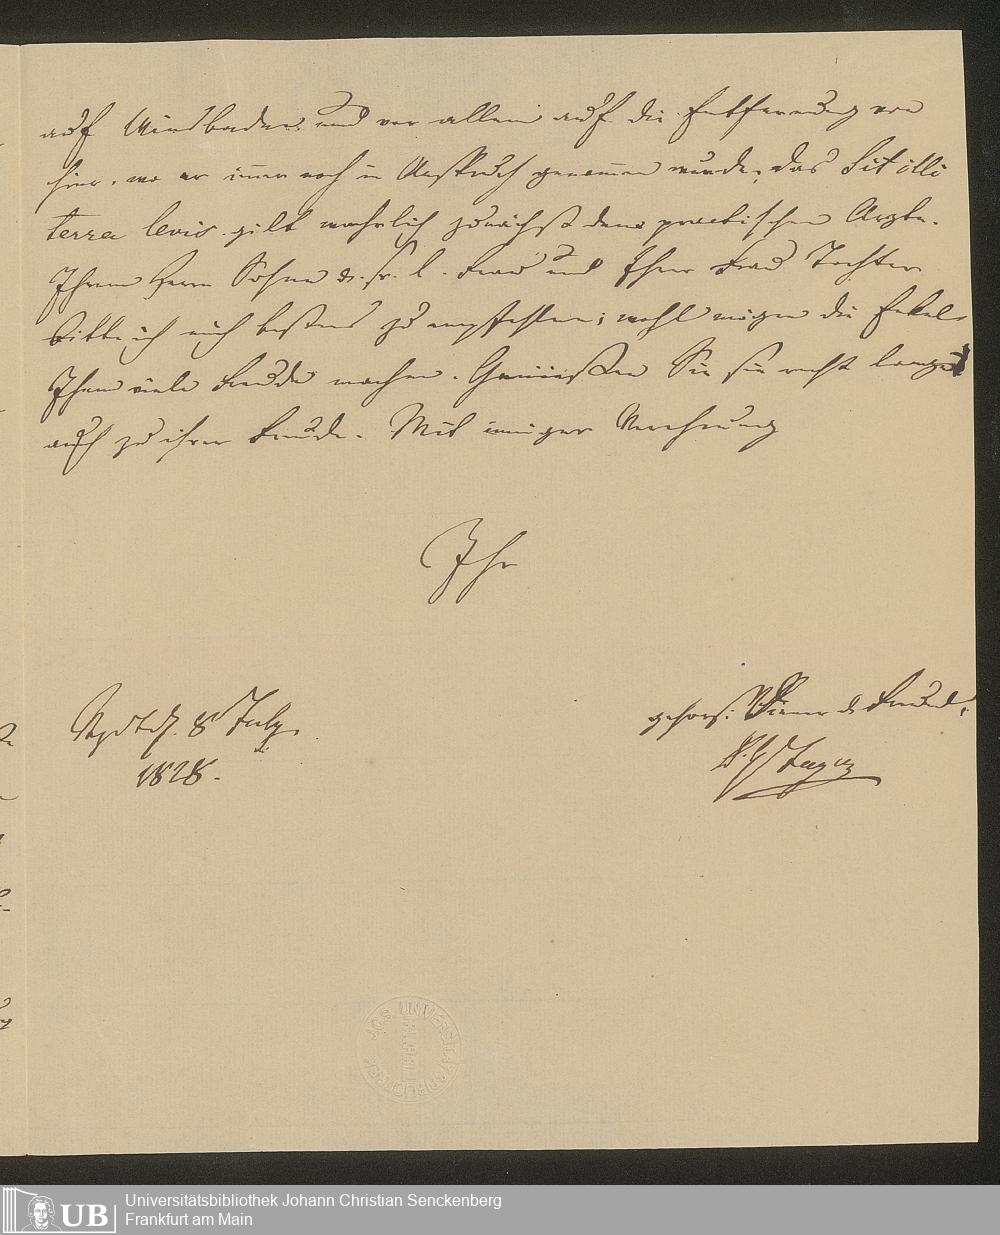 auf Wiesbaden und vor allem auf die Entfernung von
hier, wo er immer noch in Anspruch genommen wurde. das Sit illi
terra levis gilt wahrlich zunächst dem practischen Arzte.
Ihrem Herrn Sohne u. fr. l. Frau und Ihrer Frau Tochter
bitte ich mich bestens zu empfehlen; wohl mögen die Enkel
Ihnen viele Freude machen. Genießen Sie sie recht lange
auch zu ihrer Freude. Mit inniger Verehrung
Ihr
gehors. Diener u. Freund.
8 July
1828.
UNIVERSITÄT
Universitätsbibliothek Johann Christian Senckenberg
Frankfurt am Main
UB